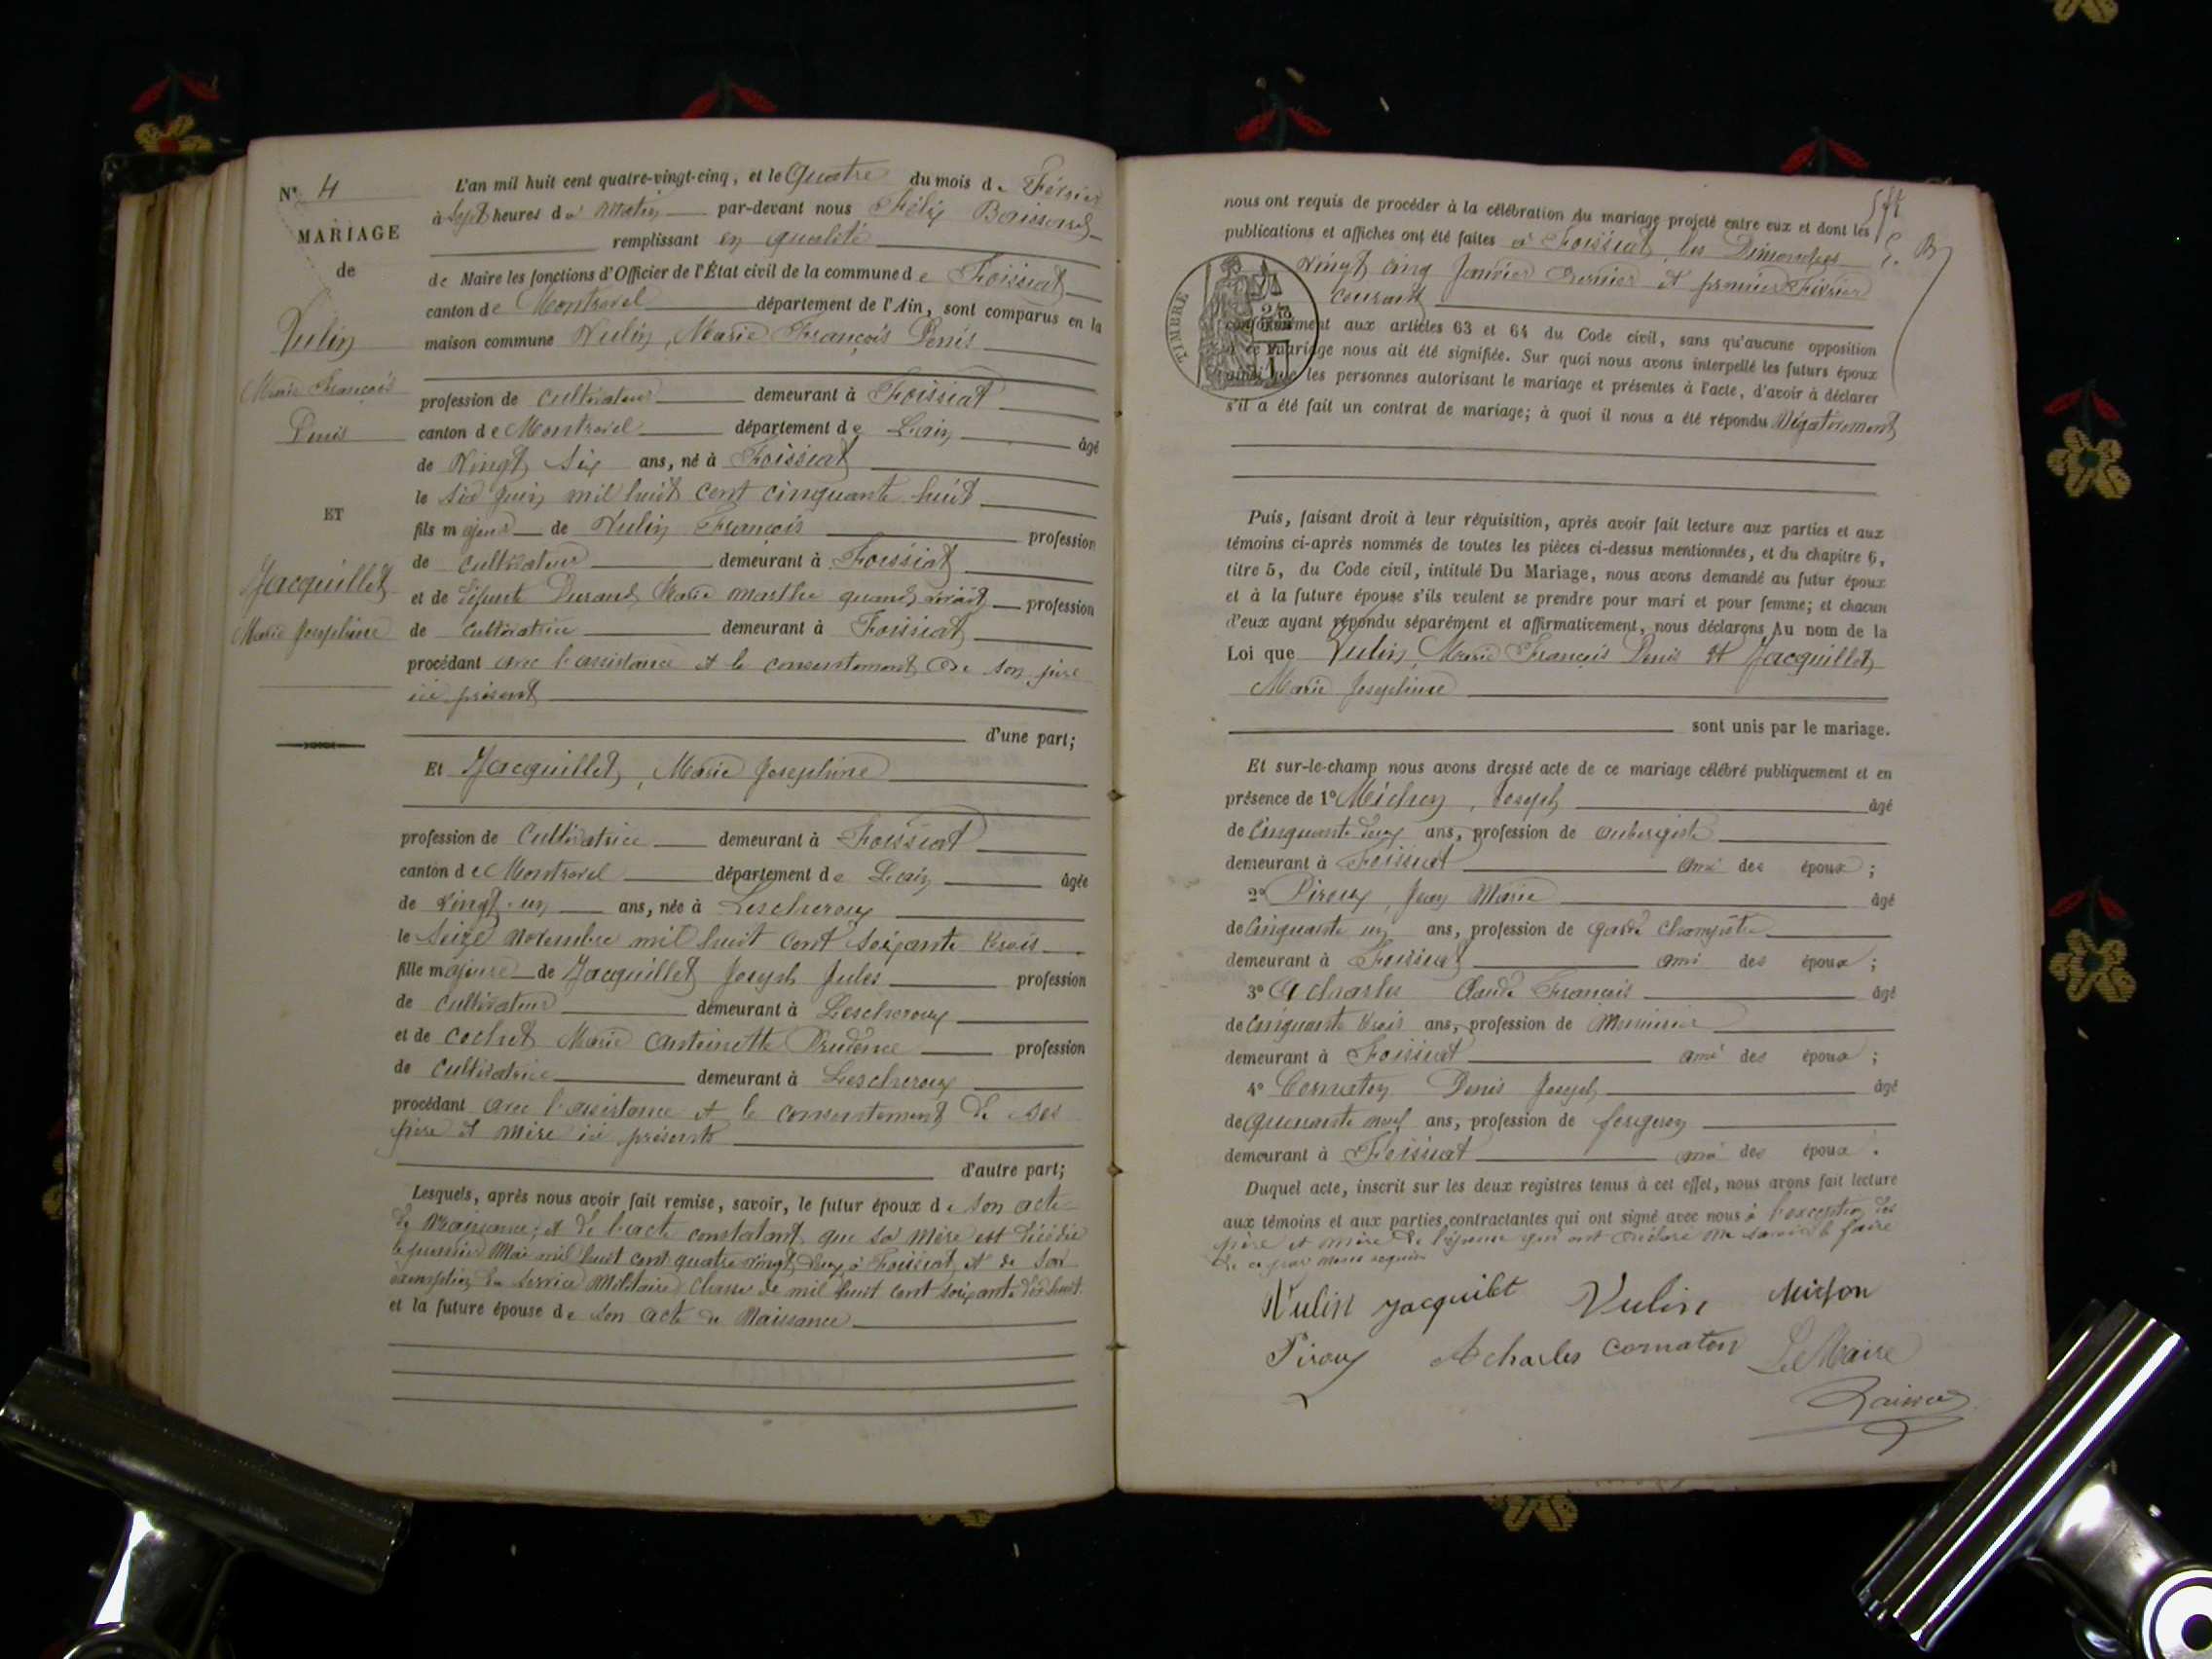 N° 4
MARIAGE
de
Vulin
Marie François
Denis
ET
Jacquillet
Marie Josephine
L'an mil huit cent quatre-vingt-cinq, et le Quatre du mois de Février
à Sept heures du Matin par-devant nous Félix
remplissant en qualité
de Maire les fonctions d'Officier de l'État civil de la commune de Foissiat
canton de Montrevel département de l'Ain, sont comparus en la
maison commune Vulin, Marie François Denis
profession de cultivateur demeurant à Foissiat
canton de Montrevel département de L'ain âgé
de Vingt six ans, né à Foissiat
le six juin mil huit cent cinquante huit
fils majeur de Vulin François profession
de cultivateur demeurant à Foissiat
et de défunte Durand Marie Marthe quand vivait profession
de cultivatrice demeurant à Foissiat
procédant avec l'assistance et le consentement de son père
ici présent
d'une part;
Et Jacquillet, Marie Josephine
profession de Cultivatrice demeurant à Foissiat
canton de Montrevel département de L'ain âgée
de Vingt-un ans, née à Lescheroux
le Seize Novembre mil huit cent soixante trois
fille majeure de Jacquillet Joseph Jules profession
de cultivateur demeurant à Lescheroux
et de Cochet Marie Antoinette Prudence profession
de Cultivatrice demeurant à Lescheroux
procédant avec l'assistance et le consentement de ses
père et mère ici présents
d'autre part;
Lesquels, après nous avoir fait remise, savoir, le futur époux de son acte
de Naissance, et de l'acte constatant que sa mère est décédée
le premier Mai mil huit cent quatre vingt deux à Foissiat, et de son
exemption du service Militaire Classe de mil huit cent soixante dix huit
et la future épouse de son acte de Naissance
nous ont requis de procéder à la célébration du mariage projeté entre eux et dont les
publications et affiches ont été faites à Foissiat les Dimanches
Vingt cinq Janvier dernier et premier Février
courant
TIMBRE
conformément aux articles 63 et 64 du Code civil, sans qu'aucune opposition
à ce mariage nous ait été signifiée. Sur quoi nous avons interpellé les futurs époux
ainsi que les personnes autorisant le mariage et présentes à l'acte, d'avoir à déclarer
s'il a été fait un contrat de mariage; à quoi il nous a été répondu Négativement
Puis, faisant droit à leur réquisition, après avoir fait lecture aux parties et aux
témoins ci-après nommés de toutes les pièces ci-dessus mentionnées, et du chapitre 6,
titre 5, du Code civil, intitulé Du Mariage, nous avons demandé au futur époux
et à la future épouse s'ils veulent se prendre pour mari et pour femme; et chacun
d'eux ayant répondu séparément et affirmativement, nous déclarons Au nom de la
Loi que Vulin, Marie François Denis et Jacquillet
Marie Josephine
sont unis par le mariage.
Et sur-le-champ nous avons dressé acte de ce mariage célébré publiquement et en
présence de 1° Michon, Joseph âgé
de Cinquante deux ans, profession de aubergiste
demeurant à Foissiat ami des époux ;
2° Piroux, Jean Marie âgé
de Cinquante un ans, profession de garde champêtre
demeurant à Foissiat ami des époux ;
3° Acharles Claude François âgé
de cinquante trois ans, profession de Menuisier
demeurant à Foissiat ami des époux ;
4° Cornaton Denis Joseph âgé
de quarante neuf ans, profession de forgeron
demeurant à Foissiat ami des époux .
Duquel acte, inscrit sur les deux registres tenus à cet effet, nous avons fait lecture
aux témoins et aux parties contractantes qui ont signé avec nous à l'exception des
père et mère de l'épouse qui ont déclaré ne savoir le faire
de ce par nous requis
Vulin Jacquilet Vulin Michon
Piroux Acharles Cornaton Le Maire